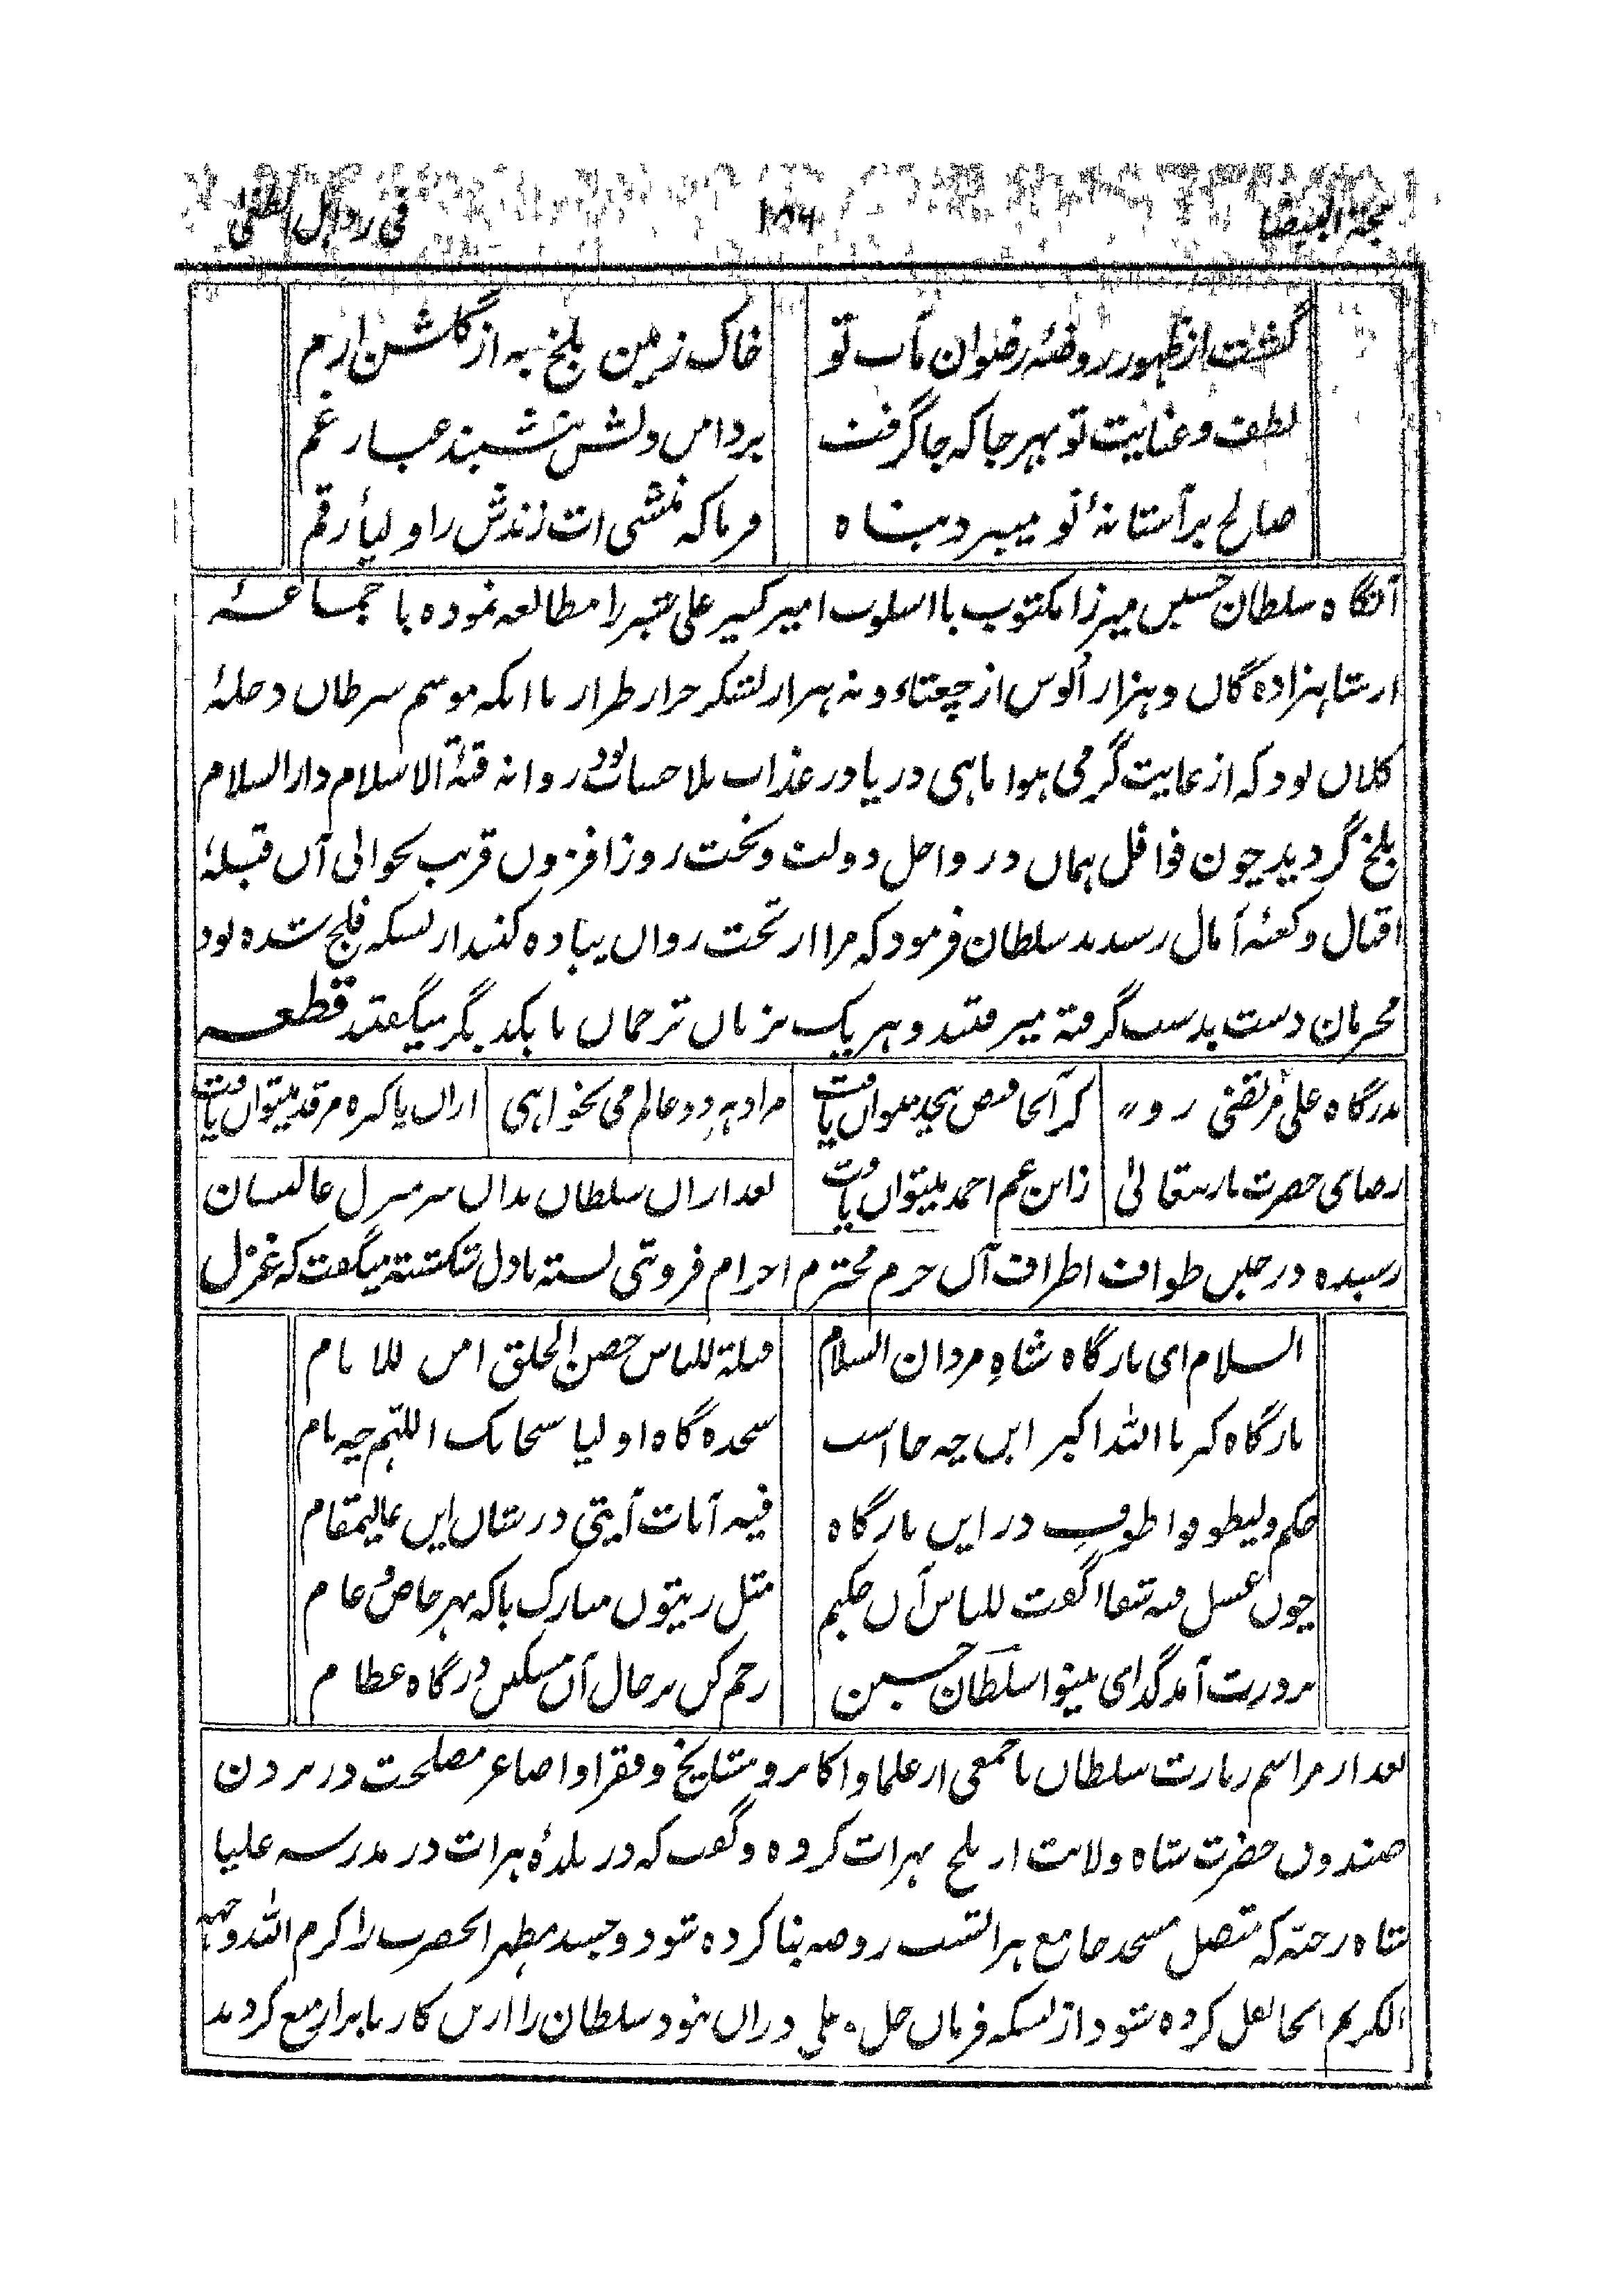 حجة البیضا ۱۸۴ فی رد اہل الطغی
گشت از ظہور روضۂ رضوان مآب تو خاک زمین بلخ بہ از گلشن ارم
لطف و عنایت تو بہر جا کہ جا گرفت بر دامن دلش ننشیند غبار غم
صالح بر آستانۂ تو میبرد پناہ فرما کہ منشی ات زندش را ولیأ رقم
آنگاہ سلطان حسین میرزا مکتوب با اسلوب امیر کبیر علی شیر را مطالعہ نمودہ با جماعۂ
از شاہزادہ گان و ہزار الوس از چغتاء و نہ ہزار لشکر جرار طرار با انکہ موسم سرطان و حلۂ
کلان بود کہ از غایت گرمی ہوا ماہی دریا در عذاب بلا حساب بود روانہ قبۃ الاسلام دار السلام
بلخ گردید چون قوافل ہمان در واحل دولت و بخت روز افزون قریب بحوالی آن قبلۂ
اقبال و کعبۂ آمال رسیدند سلطان فرمود کہ مرا از تخت روان پیادہ کنند از بسکہ فلج شدہ بود
محرمان دست بدست گرفتہ میرفتند و ہر یک بزبان ترجمان با یکدیگر میگفتند قطعہ
بدرگاہ علی مرتضی رو کہ آنجا فیض بیحد میتوان یافت مراد ہر دو عالم می بخواہی ازان پاکیزہ مرقد میتوان یافت
رضای حضرت باریتعالیٰ ز ابن عم احمد میتوان یافت بعد ازان سلطان بدان سر منزل عالیشان
رسیدہ در حین طواف اطراف آن حرم محترم احرام فروتنی بستہ با دل شکستہ میگفت کہ غزل
السلام ای بارگاہ شاہِ مردان السلام قبلۃ للناس حصن الخلق امن للانام
بارگاہ کبریا اللہ اکبر این چہ جا است سجدہ گاہ اولیا سبحانک اللہم چہ نام
حکم ولیطوفوا طوف در این بارگاہ فیہ آیات آیتی در شان این عالیمقام
چون عسل فیہ شفا گفت للناس آن حکیم مثل زیتون مبارک باکہ بہر خاص و عام
بر درت آمد گدای بینوا سلطان حسین رحم کن بر حال آن مسکین درگاہ عظام
بعد از مراسم زیارت سلطان با جمعی از علما و اکابر و مشایخ و فقرا و اصاغر مصلحت در بردن
صندوق حضرت شاہ ولایت از بلخ بہرات کردہ و گفت کہ در بلدۂ ہرات در مدرسہ علیا
شاہ رخیہ کہ متصل مسجد جامع ہرا تست روضہ بنا کردہ شود و جسد مطہر الحضرت را کرم اللہ وجہہ
الکریم انجا نقل کردہ شود از بسکہ فرمان جلی دران نبود سلطان را ازین کار بابرار منع کردند